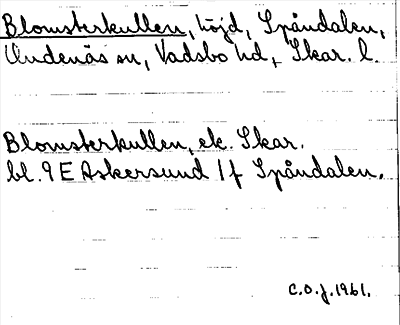 Blomsterkullen, höjd, Spåndalen,
Undenäs sn, Vadsbo hd, Skar. l.
Blomsterkullen, ek. Skar.
bl. 9 E Askersund 1 f Spåndalen.
C.O.J. 1961.